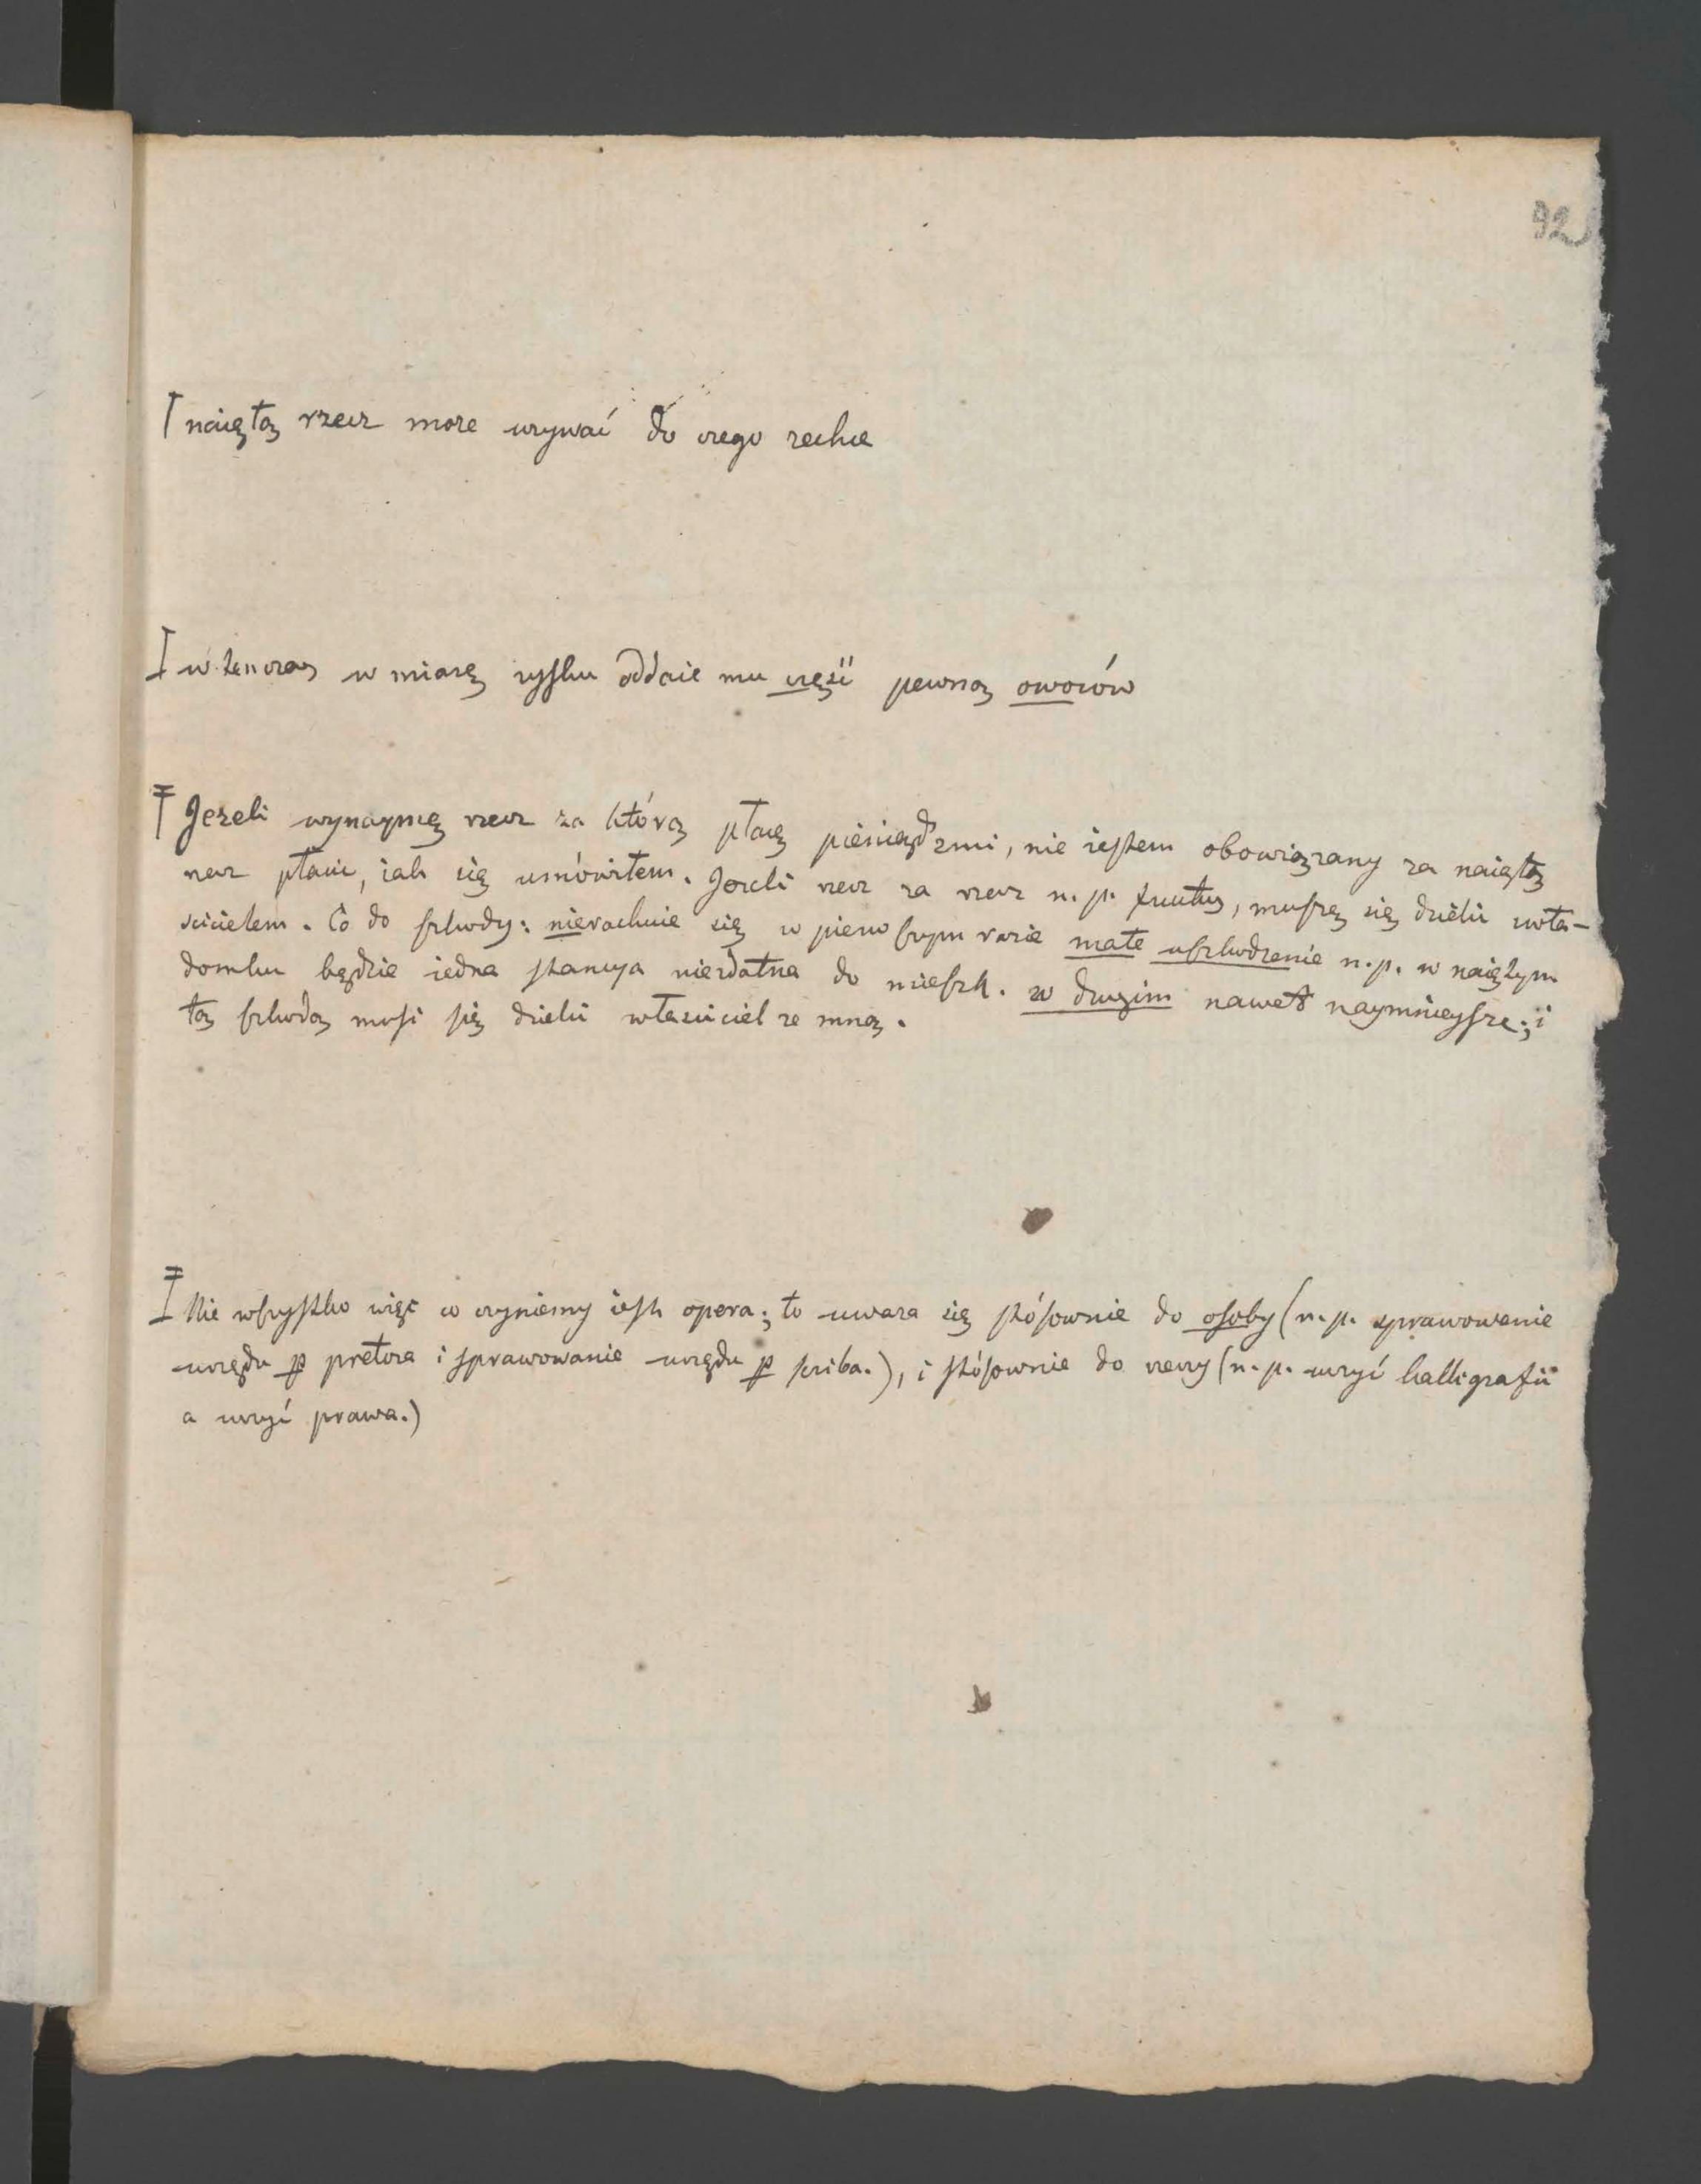 92
naiętą rzecz może używać do czego zechce
w tenczas w miarę zysku oddaie mu częsć pewną owoców
Jeżeli wynaymę rzecz za którą płacę pieniędzmi, nie iestem obowiązany za naiętą
rzecz płacić, iak się umówiłem. Jezeli rzecz za rzecz n. p. fructus, muszę się dzielić z wła-
scicielem. Co do szkody: nierachuie się w pierwszym razie małe uszkodzenie n. p. w naiętym
domku będzie iedna stancya niezdatna do mieszk. w drugim nawet naymnieysze; i
tą szkodą musi się dzielić właściciel ze mną.
Nie wszystko więc co czyniemy iest opera; to uważa się stósownie do osoby (n. p. sprawowanie
urzędu p pretora i sprawowanie urzędu p scriba.), i stósownie do rzeczy (n. p. uczyć kalligrafii
a uczyć prawa.)